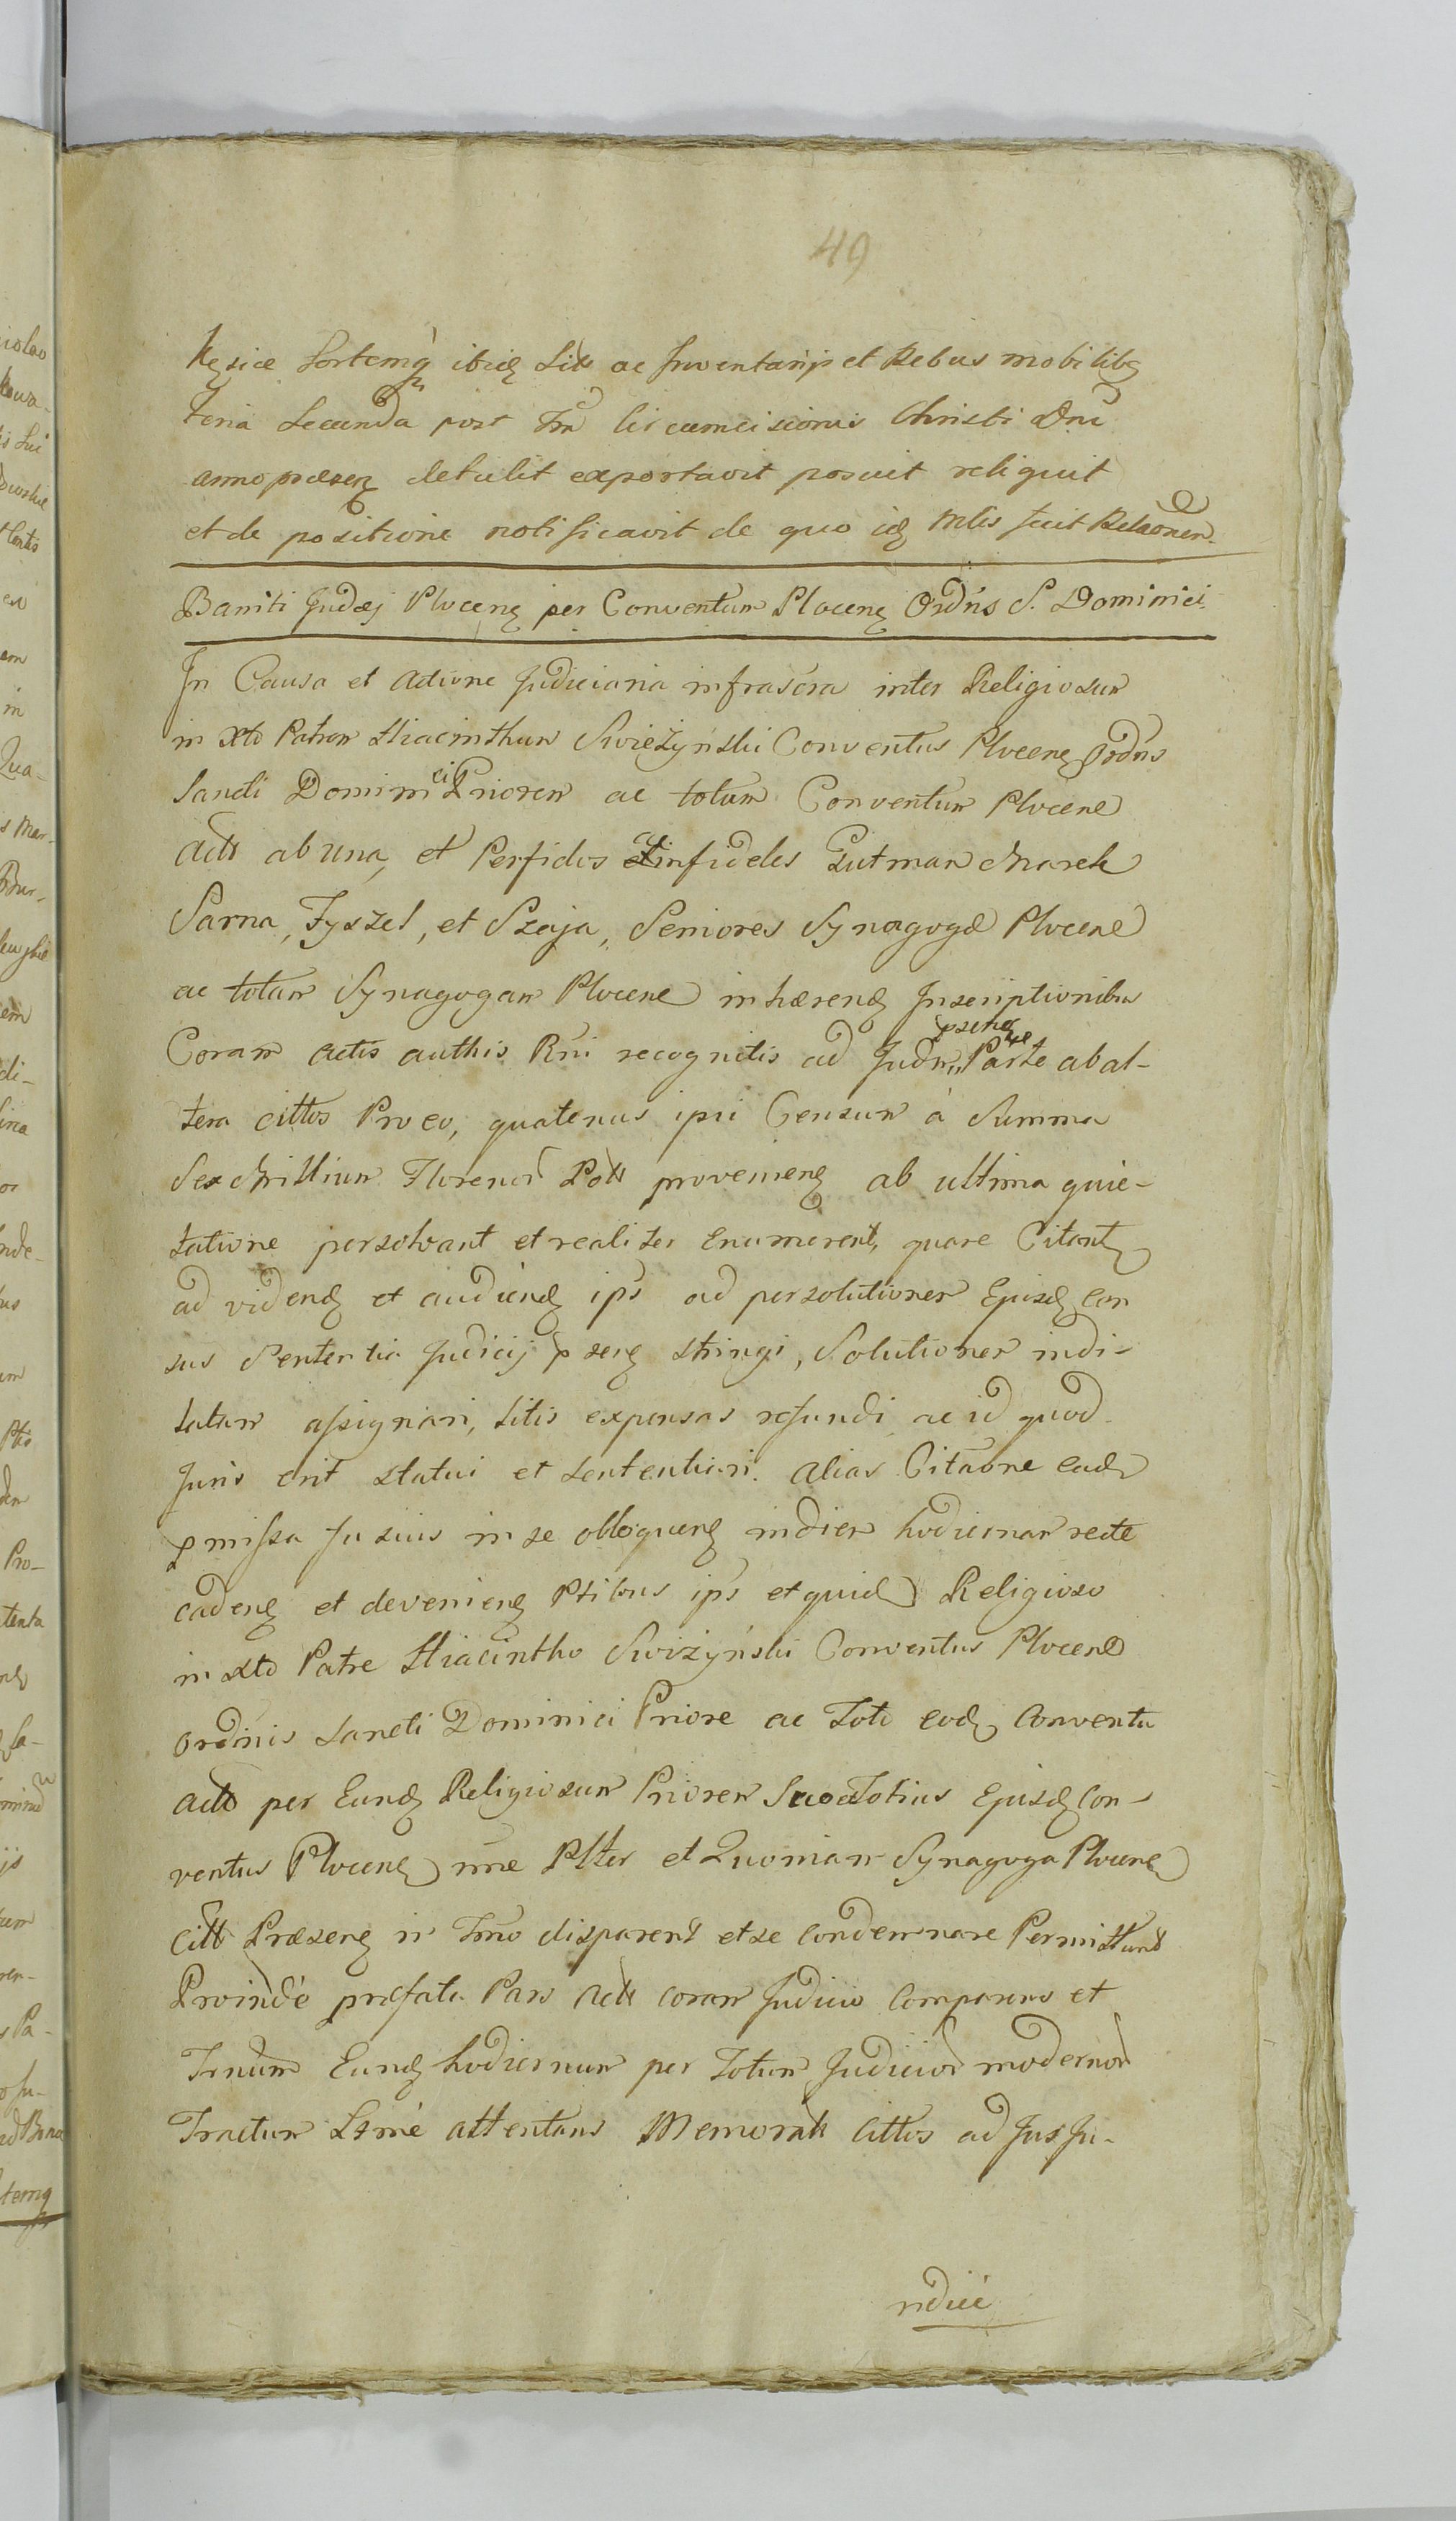 49
sortemq ibidę sitis ac Inventarijs et Rebus mobilibę
Feria Secunda post Fm Circumcisionis Christi Dni
anno præsenę detulit exportavit posuit reliquit
et de positione notificavit de quo idę Mlis fecit Relaonen.
Baniti Judæj Plocenę per Conventum Plocenę Ordnis S. Dominici
In Causa et Actione Judiciaria infrascra inter Religiosum
in Xto Patrem Hiacinthum Swieżyński Conventus Plocenę Ordnis
Sancti Dominici Priorem ac totum Conventum Plocene
Acts ab una, et Perfidos ac infideles Gutman Marek
Sarna, Fyszel, et Szaja, Seniores Synagogæ Plocene
ac totam Synagogam Plocene inhærendę Inscriptionibus
Coram actis authis Rni recognitis ad Judm psens Parte ab al-
tera cittos Pro eo, quatenus ipsi Censum à Summa
Sex Millium Florenor Poll provenienę ab ultima quie-
tatione persolvant et realiter Enumerent, quare Citantę
ad videndę et audiendę ips ad persolutionem Ejusdę Cen
sus Sententia Judicij psenę stringi, Solutionem indi-
latam assignari, litis expensas refundi ac id quod
Juris erit statui et sententiari. Alias Citaone eadę
pmissa fusius in se obloquenę in diem hodiernam recte
cadenę et devenienę Ptibus ips et quidę Religioso
in Xto Patre Hiacintho Swiżyński Conventus Plocene
Ordinis Sancti Dominici Priore ac Toto eodę Conventu
Acto per Eundę Religiosum Priorem Suo et Totius Ejusdę Con-
ventus Plocenę nne Plter et Quoniam Synagoga Plocenę
Citt Præsenę in Tmno disparent et se Condemnare Permittunt
Proindè præfata Pars Acts coram Judicio Comparens et
Trnum Eundę hodiernum per Totum Judicior modernor
Tractum Ltmè attentans Memorat Cittos ad Jus Ju-
ridice